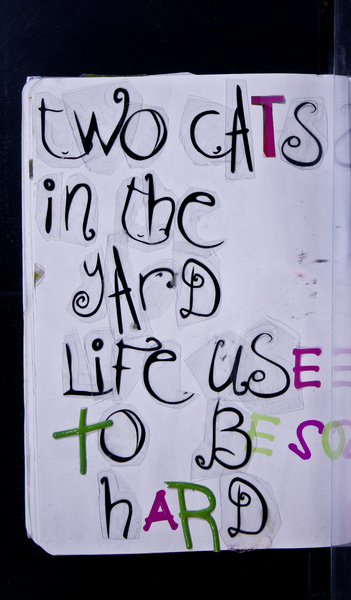 two cATS
in the
yArD
LiFe uSE
tO BE SO
hARD